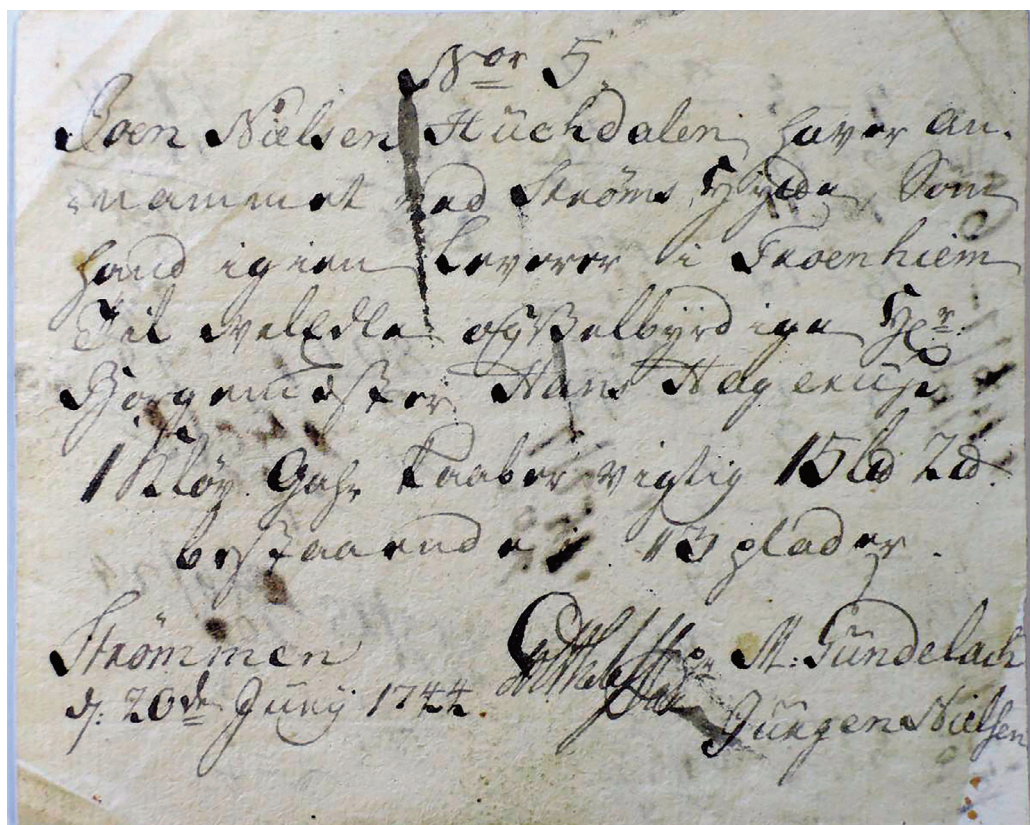 Nor 5
Joen Nielsen Hüchdalen haver an-
nammet ved Strøms Hytte, Som
hand igien Leverer i Troenhiem
Til velEdle og Velbÿrdige Hr
Borgemester Hans Hagerup
1 Kløv Gahr Kaaber vigtig 15 Ld 2 d.
bestaaende i 13 plader.
Strømmen
d. 20de Junÿ 1744
M: Gündelach
Jürgen Nielsen